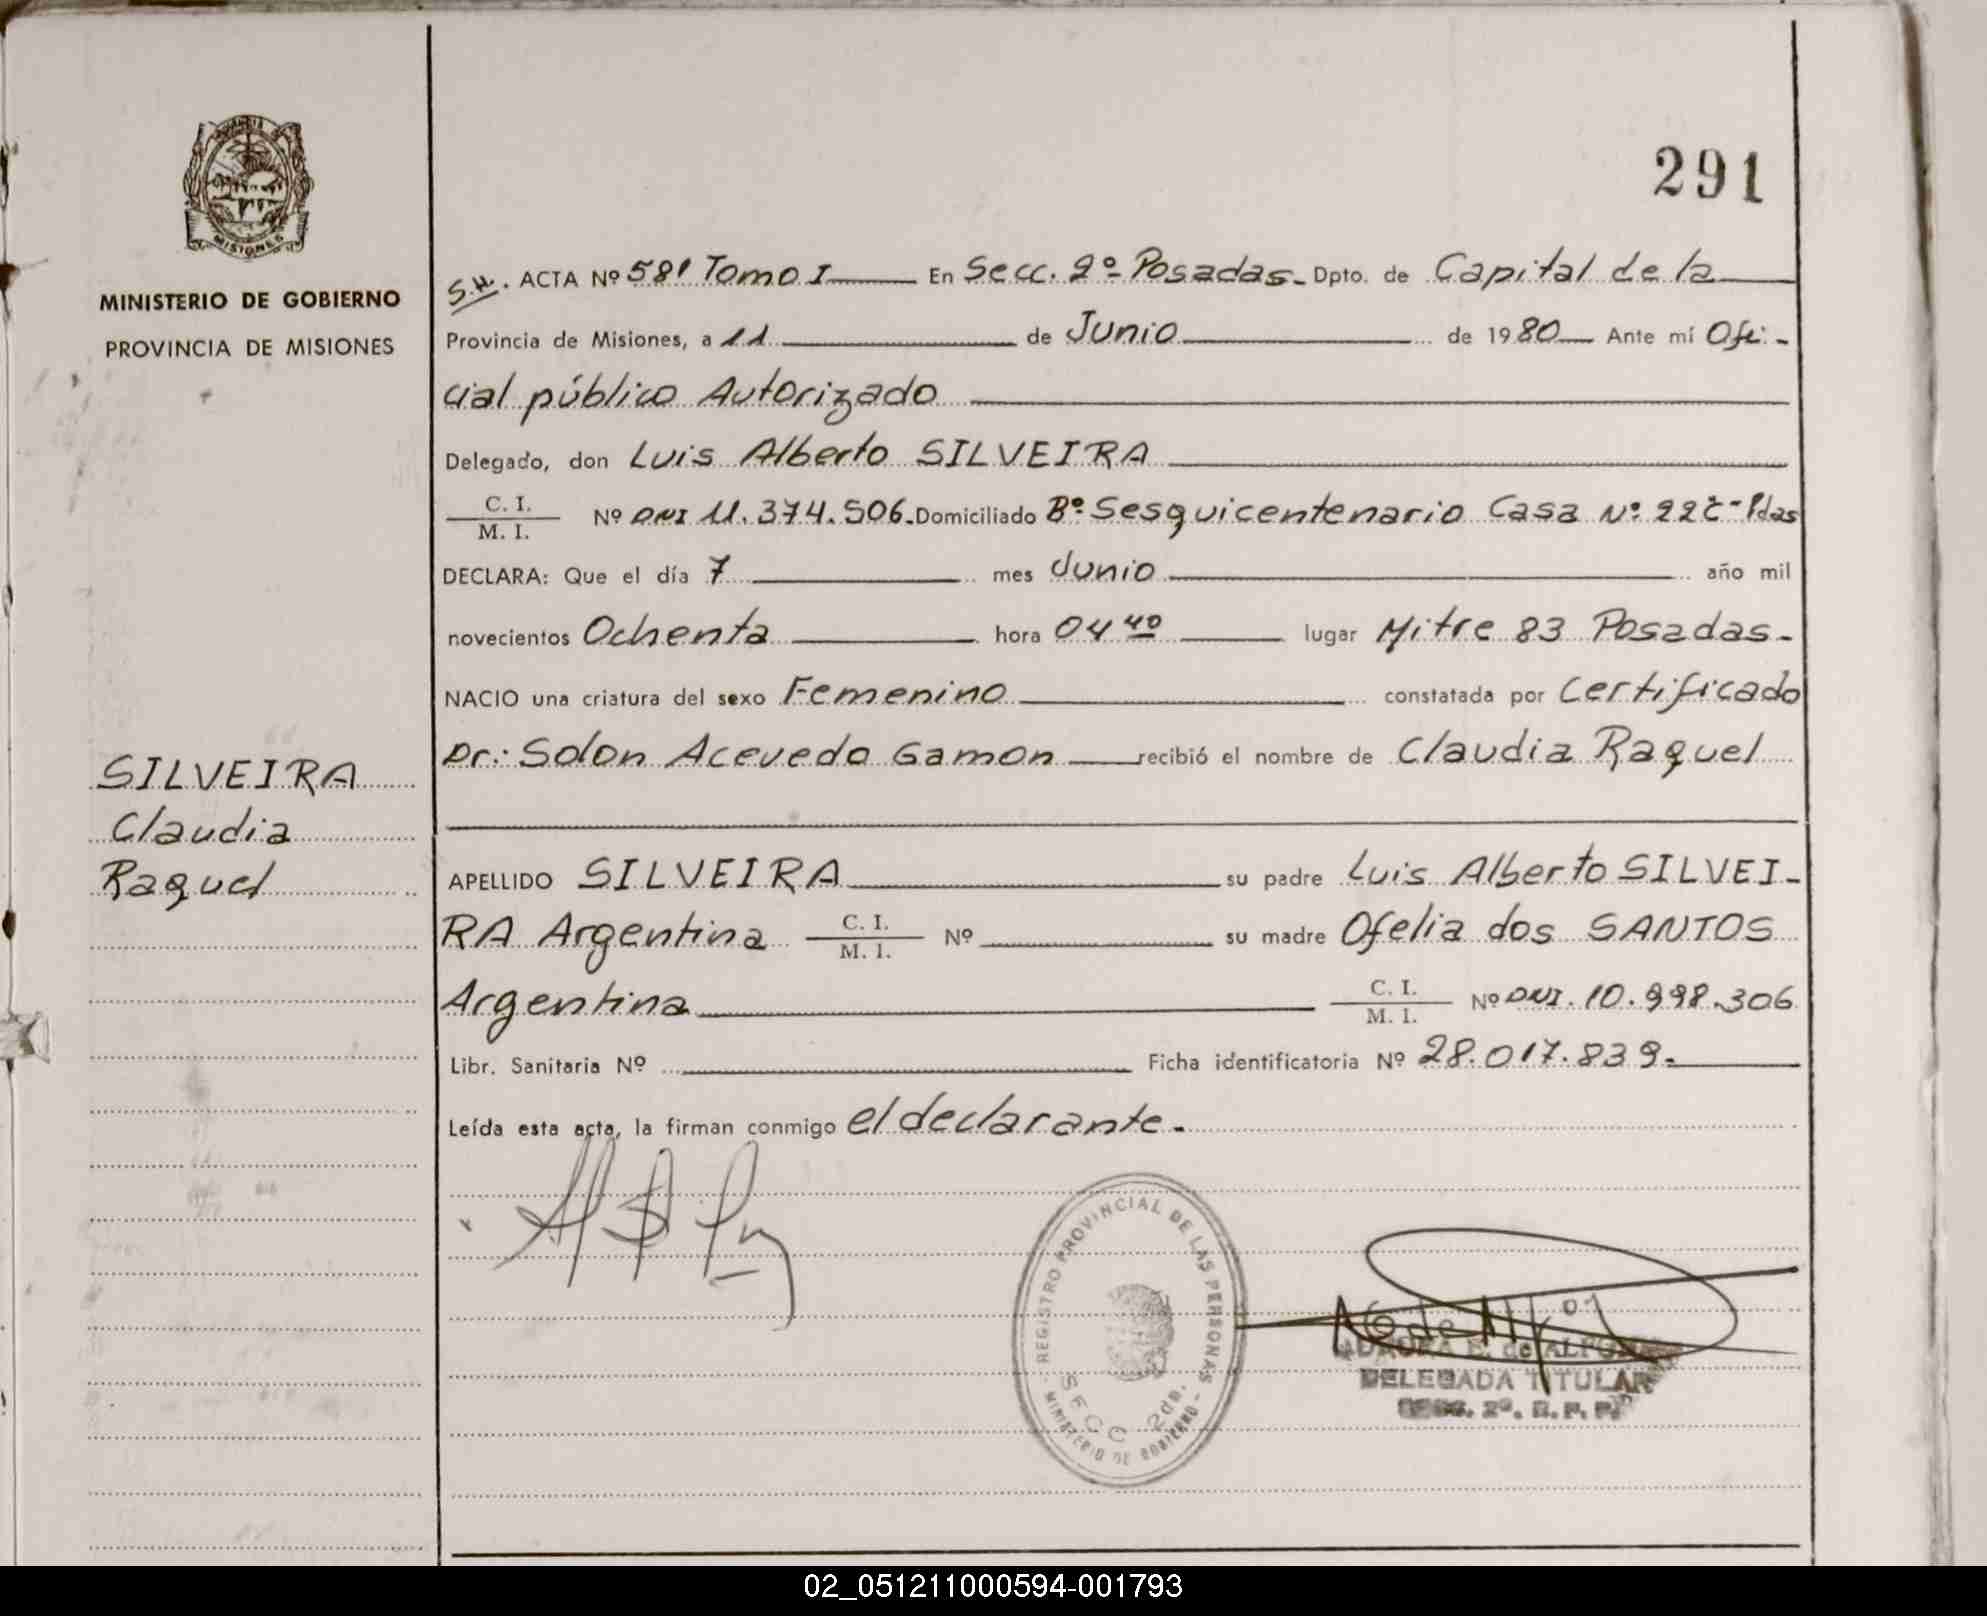 291
MISIONES
MINISTERIO DE GOBIERNO
PROVINCIA DE MISIONES
SILVEIRA
Claudia
Raquel
S.H. ACTA Nº 581 Tomo I En Secc. 2º Posadas. Dpto. de Capital de la
Provincia de Misiones, a 11 de Junio de 1980 Ante mí Ofi-
cial público Autorizado
Delegado, don Luis Alberto SILVEIRA
C. I.
M. I. Nº DNI 11.374.506. Domiciliado Bº Sesquicentenario Casa Nº Pdas
DECLARA: Que el día 7 mes Junio año mil
novecientos Ochenta hora 04 40 lugar Mitre 83 Posadas-
NACIO una criatura del sexo Femenino constatada por Certificado
Dr: Solon Acevedo Gamon recibió el nombre de Claudia Raquel
APELLIDO SILVEIRA su padre Luis Alberto SILVEI-
RA Argentina C. I. M. I. Nº su madre Ofelia dos SANTOS
Argentina C. I. M. I. Nº DNI. 10.998.306
Libr. Sanitaria Nº Ficha identificatoria Nº 28.017.839.
Leída esta acta, la firman conmigo el declarante.
REGISTRO PROVINCIAL DE LAS PERSONAS
SECC 2da.
MINISTERIO DE GOBIERNO
AURORA E. de
DELEGADA TITULAR
SECC. 2º. R. P. P.
02_051211000594-001793